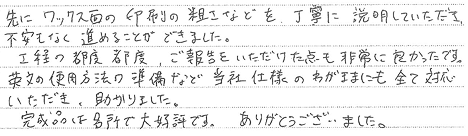 先に ワックス面の 印刷の 粗さなどを 丁寧に 説明していただき
不安もなく 進めることが できました。
工程の 都度 都度、ご報告を いただけた点も 非常に 良かったです。
英文の 使用方法の 準備など 当社 仕様の わがままにも 全て 対応
いただき、助かりました。
完成品は 各所で 大好評です。 ありがとうございました。